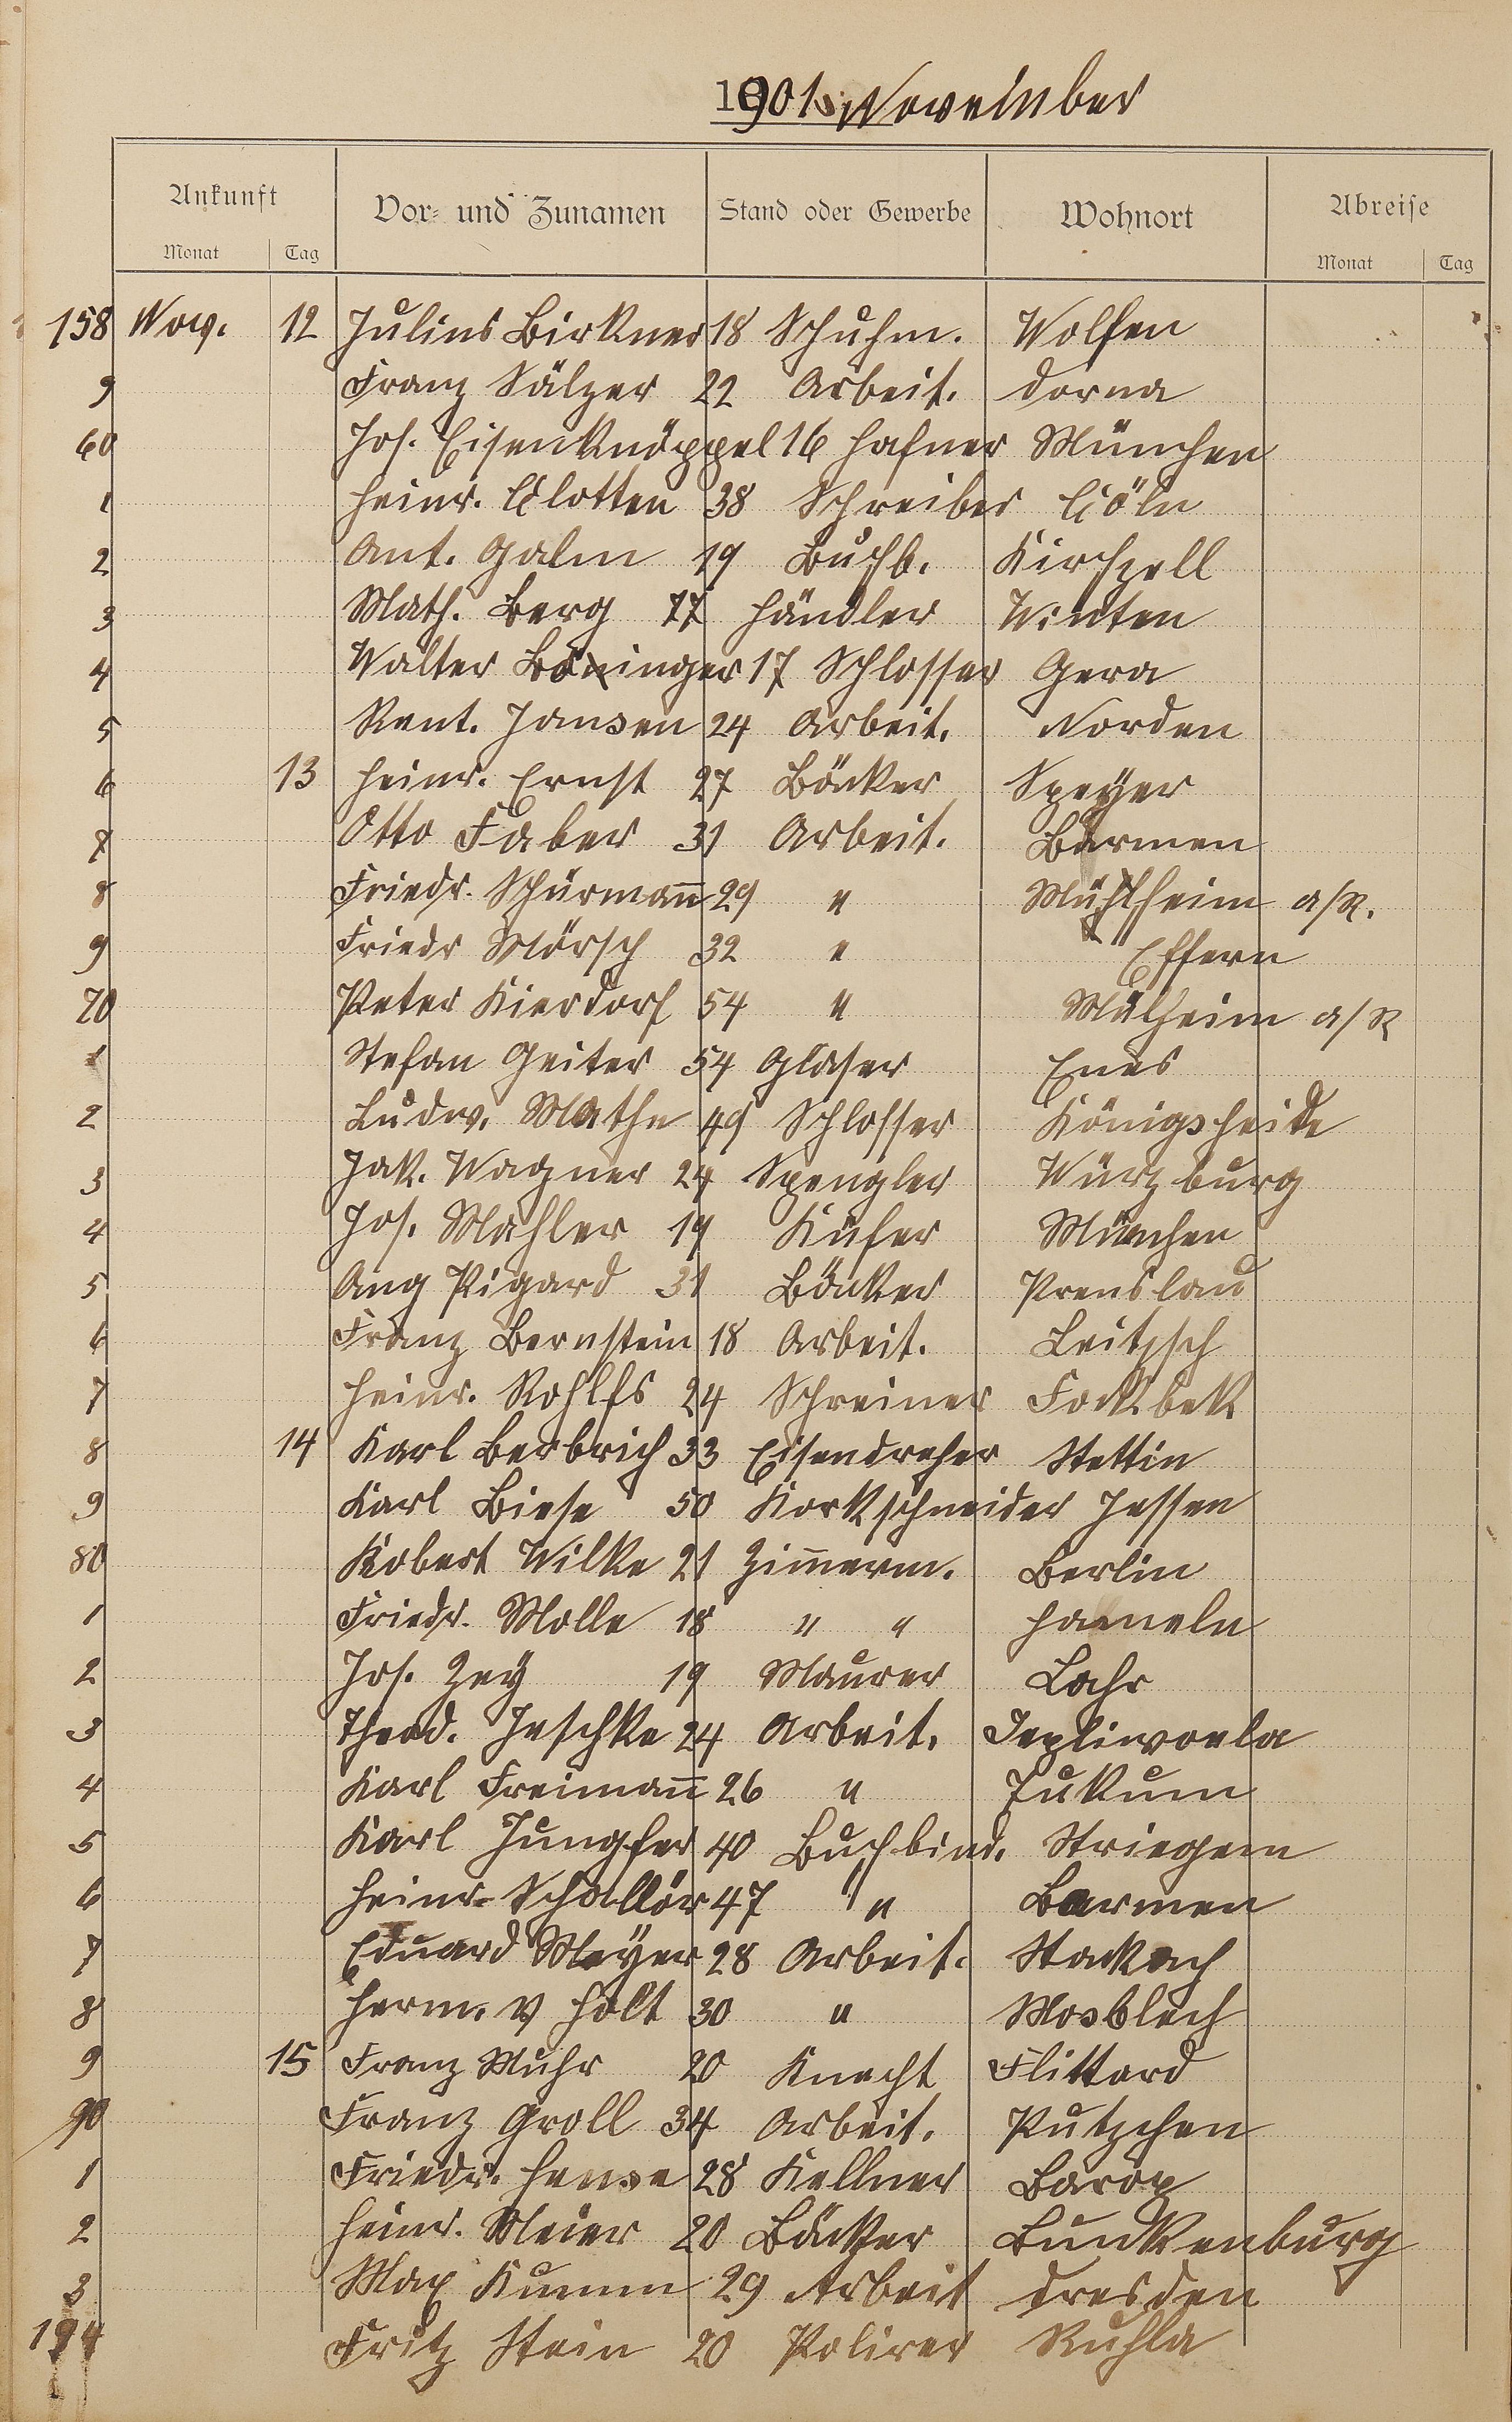 1901. November
Ankunft Vor- und Zunamen Stand oder Gewerbe Wohnort Abreise
Monat Tag Monat Tag
158 Nov. 12 Julius Birkner 18 Schuhm. Wolfen
9 Franz Sälzer 22 Arbeit. Dorna
60 Jos. Eisenknöppel 16 Hafner München
1 Heinr. Clotten 38 Schreiber Cöln
2 Ant. Galm 19 Buchb. Kirchzell
3 Math. Berg 77 Händler Winten
4 Walter Böninger 17 Schlosser Gera
5 Rent. Jansen 24 Arbeit. Norden
6 13 Heinr. Ernst 27 Bäcker Speyer
7 Otto Faber 31 Arbeit. Barmen
8 Friedr. Schürmañ 29 " Mühlheim a/R.
9 Friedr Mörsch 32 " Effern
70 Peter Kierdorf 54 " Mülheim a/R
1 Stefan Geiter 54 Glaser
2 Ludw. Mathe 49 Schlosser Königsheide
3 Jak. Wagner 24 Spengler Würzburg
4 Jos. Mahler 19 Küfer München
5 Aug Pigard 31 Bäcker Prenslau
6 Franz Bernstein 18 Arbeit. Leitzsch
7 Heinr. Rohlfs 24 Schreiner Fockbek
8 14 Karl Berbrich 33 Eisendreher Stettin
9 Karl Biese 50 Korkschneider Jessen
80 Robert Wilke 21 Zim̄erm. Berlin
1 Friedr. Molle 18 " " Hameln
2 Jos. Zey 19 Maurer Lahr
3 Theod. Jeschke 24 Arbeit.
4 Karl Freimañ 26 " Tukum
5 Karl Jungfer 40 Buchbind. Striegem
6 Heinr. Schallör 47 " Barmen
7 Eduard Meyer 28 Arbeit. Stockach
8 Herm. v Holt 30 " Mosblech
9 15 Franz Muhr 20 Knecht Flittard
90 Franz Groll 34 Arbeit. Putzchen
1 Friedr. Hense 28 Kellner Barop
2 Heinr. Meier 20 Bäcker Bunkenburg
3 Max Kumm 29 Arbeit Dresden
194 Fritz Stein 20 Polirer Ruhla